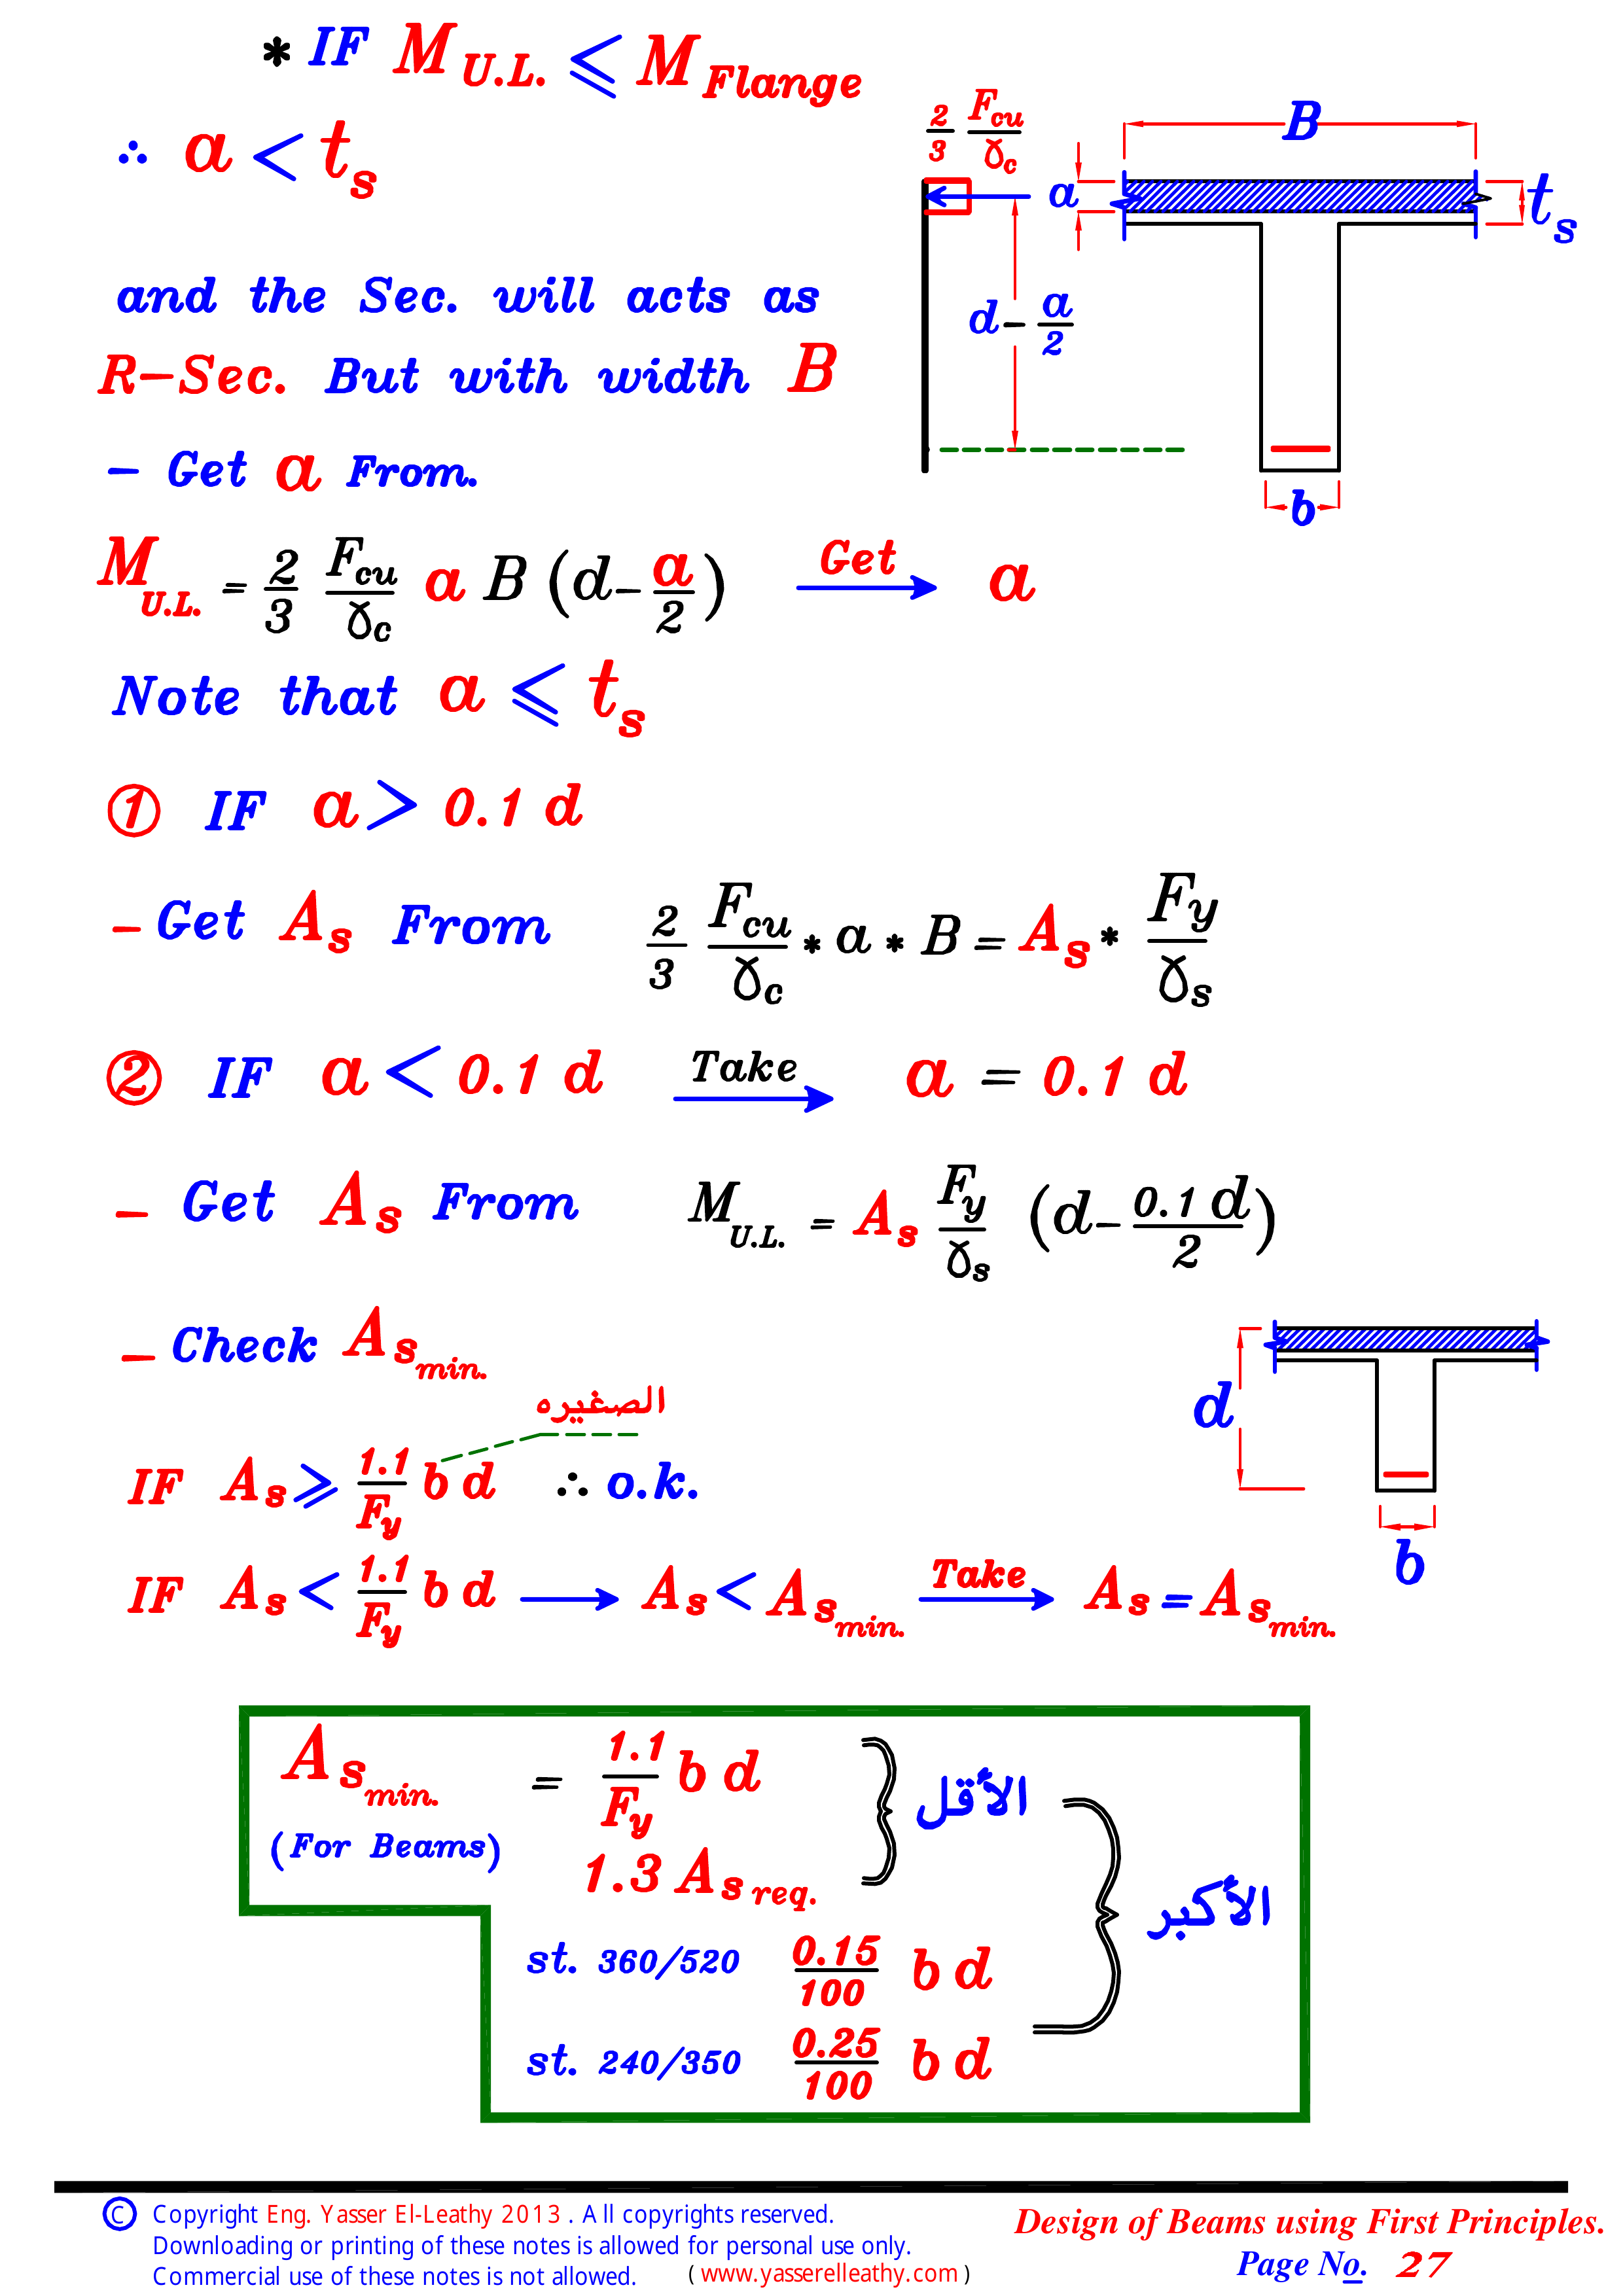 * IF M U.L. ⩽ M Flange
∴ a < t s
2/3 Fcu/γc
a
B
ts
d - a/2
b
and the Sec. will acts as
R-Sec. But with width B
- Get a From.
M U.L. = 2/3 Fcu/γc a B (d - a/2) Get → a
Note that a ⩽ ts
① IF a > 0.1 d
- Get As From 2/3 Fcu/γc * a * B = As * Fy/γs
② IF a < 0.1 d Take → a = 0.1 d
- Get As From M U.L. = As Fy/γs (d - 0.1 d/2)
- Check As min.
الصغيره
IF As ⩾ 1.1/Fy b d ∴ o.k.
IF As < 1.1/Fy b d → As < As min. Take → As = As min.
d
b
As min. = 1.1/Fy b d
الأقل
(For Beams)
1.3 As req.
الأكبر
st. 360/520 0.15/100 b d
st. 240/350 0.25/100 b d
© Copyright Eng. Yasser El-Leathy 2013 . All copyrights reserved.
Downloading or printing of these notes is allowed for personal use only.
Commercial use of these notes is not allowed. ( www.yasserelleathy.com )
Design of Beams using First Principles.
Page No. 27